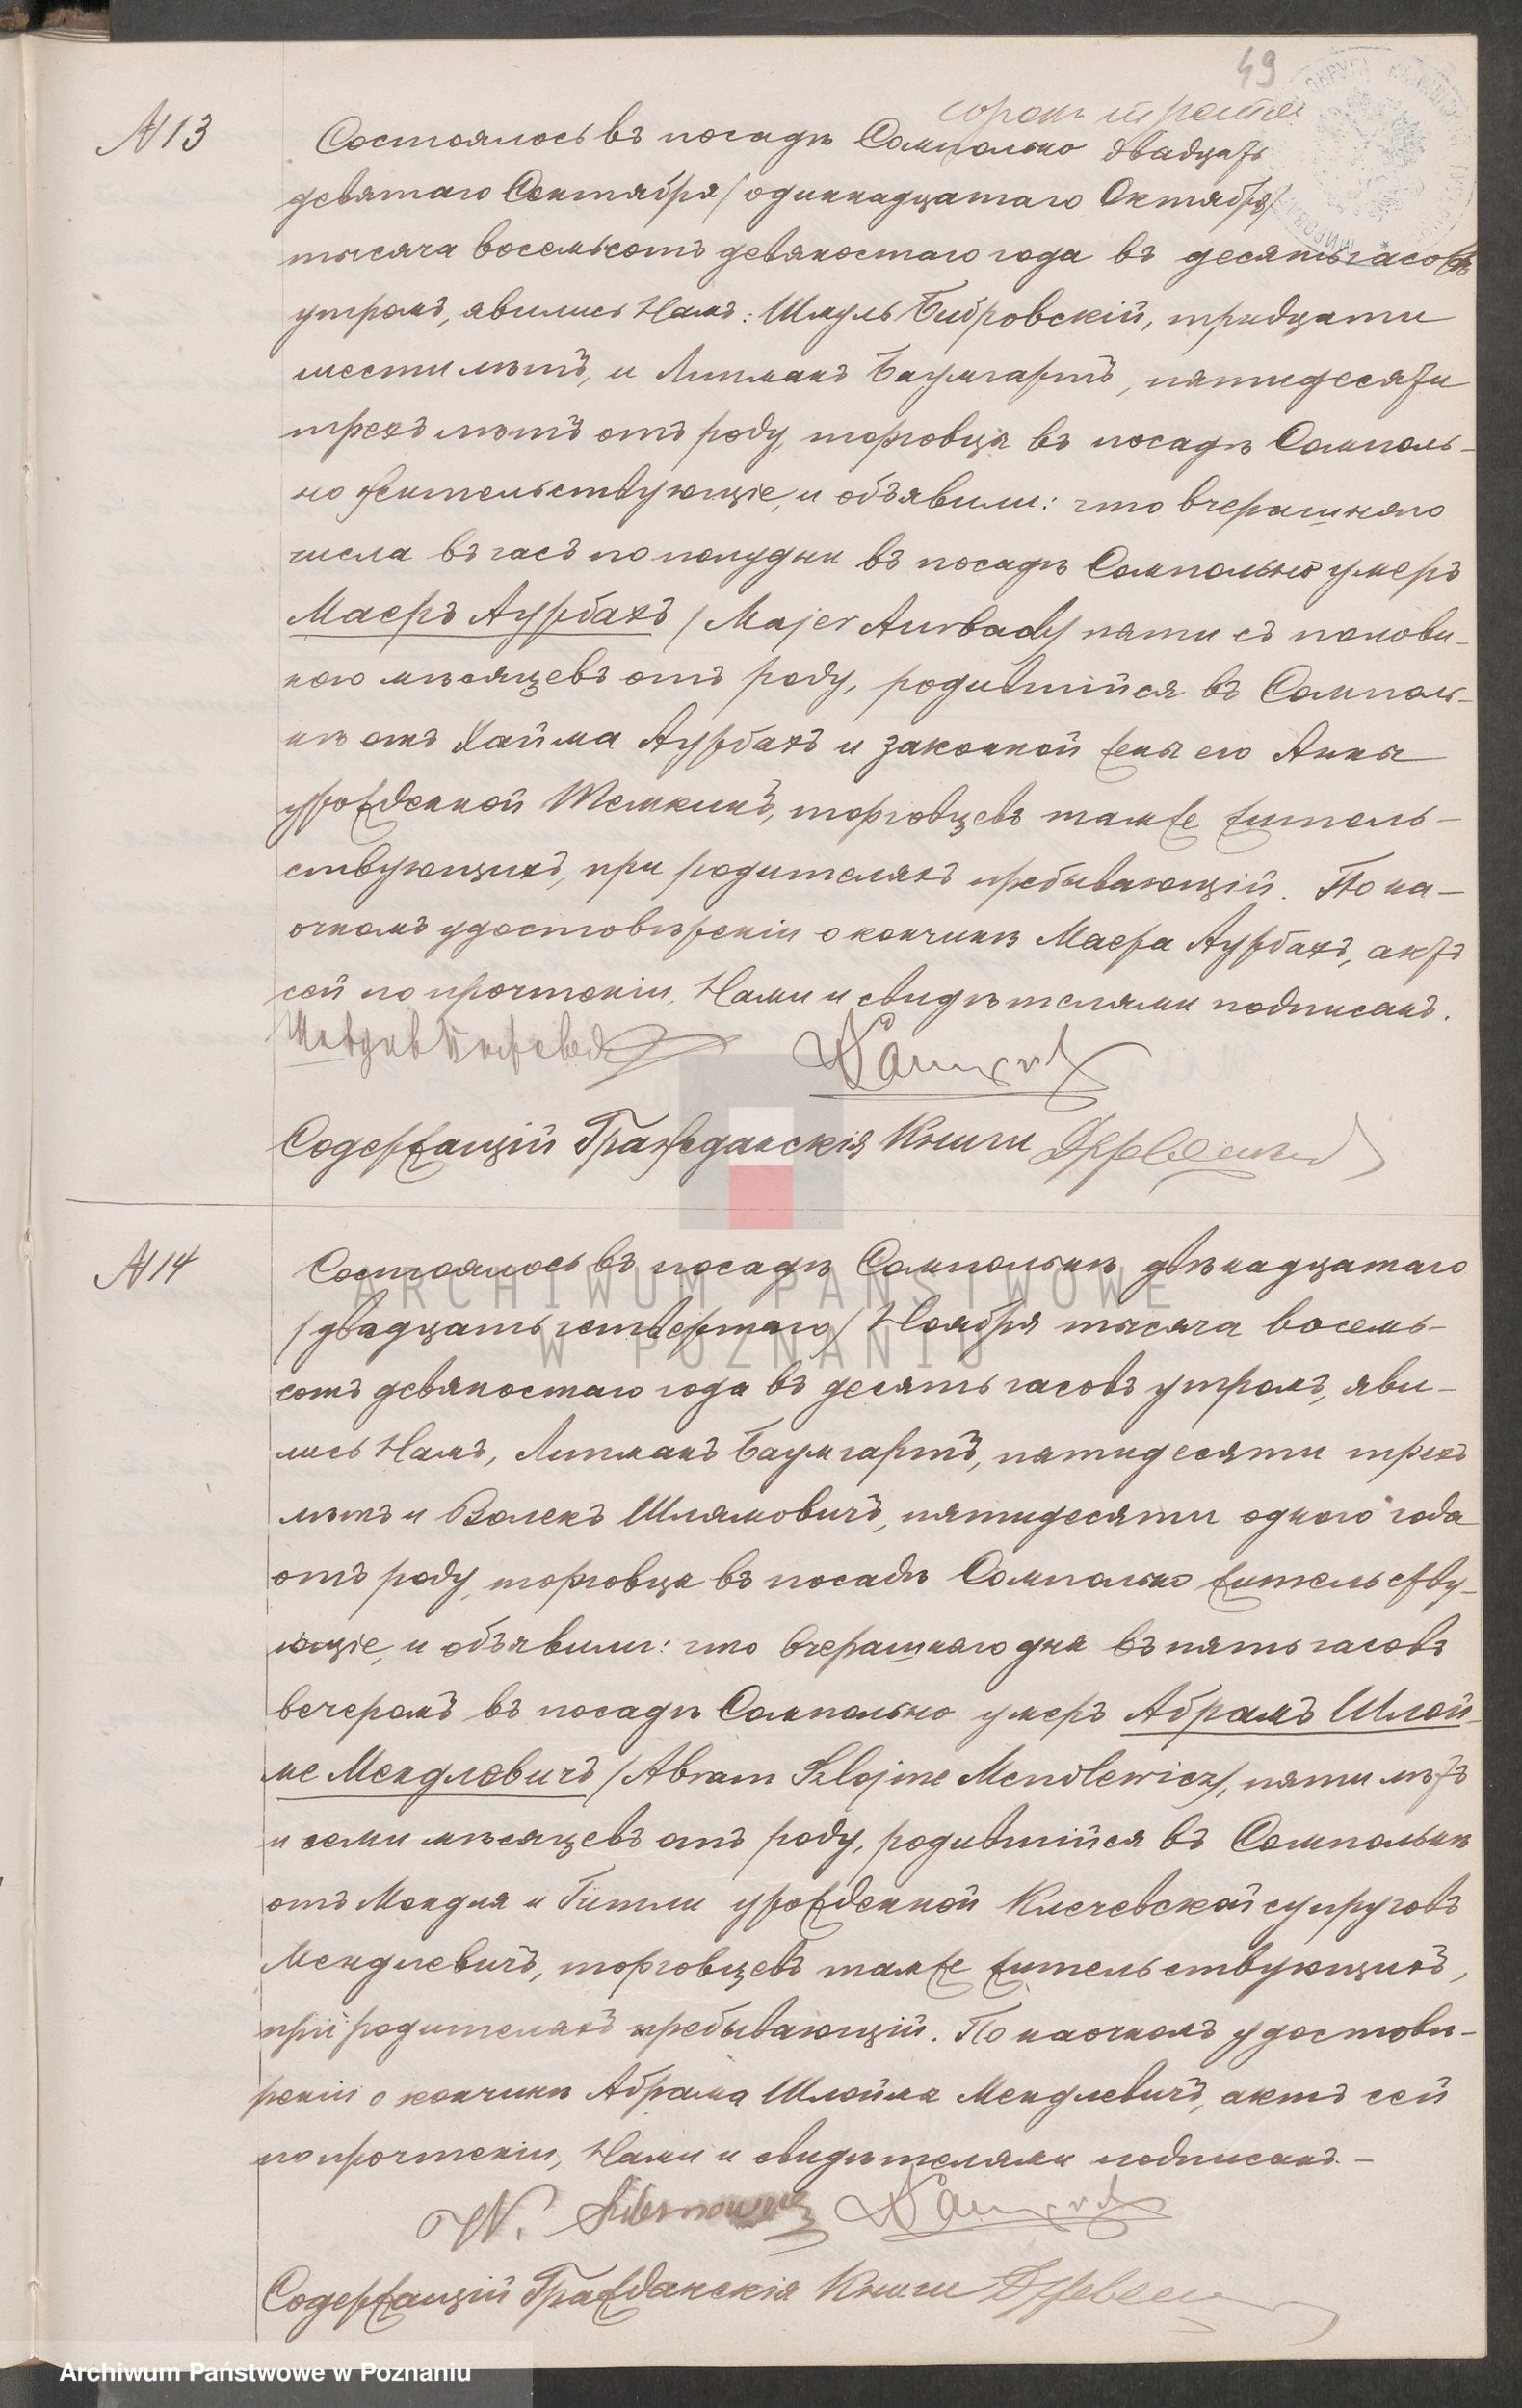 49
сорокъ третья
N 13
Состоялось въ посадѣ Сомпольно двадцать
девятаго Сентября /одиннадцатаго Октября/
тысяча восемьсотъ девяностаго года въ десять часовъ
утромъ, явились Намъ: Шмуль Бибровскій, тридцати
шести лѣтъ, и Липманъ Баумгартъ, пятидесяти
трехъ лѣтъ отъ роду, торговцы въ посадѣ Сомполь-
но жительствующіе, и объявили: что вчерашняго
числа въ часъ по полудни въ посадѣ Сомпольно умеръ
Маеръ Аурбахъ /Majer Aurbach/ пяти съ полови-
ною мѣсяцевъ отъ роду, родившійся въ Сомполь-
нѣ отъ Хайма Аурбахъ и законной жены его Анны
урожденной Темкинъ, торговцевъ тамже житель-
ствующихъ, при родителяхъ пребывающій. По на-
очномъ удостовѣреніи о кончинѣ Маера Аурбахъ, актъ
сей по прочтеніи, Нами и свидѣтелями подписанъ.
Содержащій Гражданскія Книги
N 14
Состоялось въ посадѣ Сомпольнѣ двѣнадцатаго
/двадцать четвертаго/ Ноября тысяча восемь-
сотъ девяностаго года въ десять часовъ утромъ, яви-
лись Намъ, Липманъ Баумгартъ, пятидесяти трехъ
лѣтъ и Волекъ Шлямовичъ, пятидесяти одного года
отъ роду, торговцы въ посадѣ Сомпольно жительству-
ющіе, и объявили: что вчерашняго дня въ пять часовъ
вечеромъ въ посадѣ Сомпольно умеръ Абрамъ Шлой-
ме Мендлевичъ /Abram Szlojme Mendlewicz/, пяти лѣтъ
и семи мѣсяцевъ отъ роду, родившійся въ Сомпольнѣ
отъ Мендля и Гитли урожденной Клечевской супруговъ
Мендлевичъ, торговцевъ тамже жительствующихъ,
при родителяхъ пребывающій. По наочномъ удостовѣ-
реніи о кончинѣ Абрама Шлойме Мендлевичъ, актъ сей
по прочтеніи, Нами и свидѣтелями подписанъ.-
W.
Содержащій Гражданскія Книги
ARCHIWUM PAŃSTWOWE
W POZNANIU
Archiwum Państwowe w Poznaniu